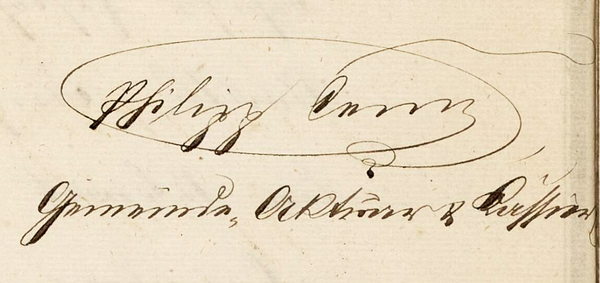 Philipp
Gemeinde-Aktuar & Kassier